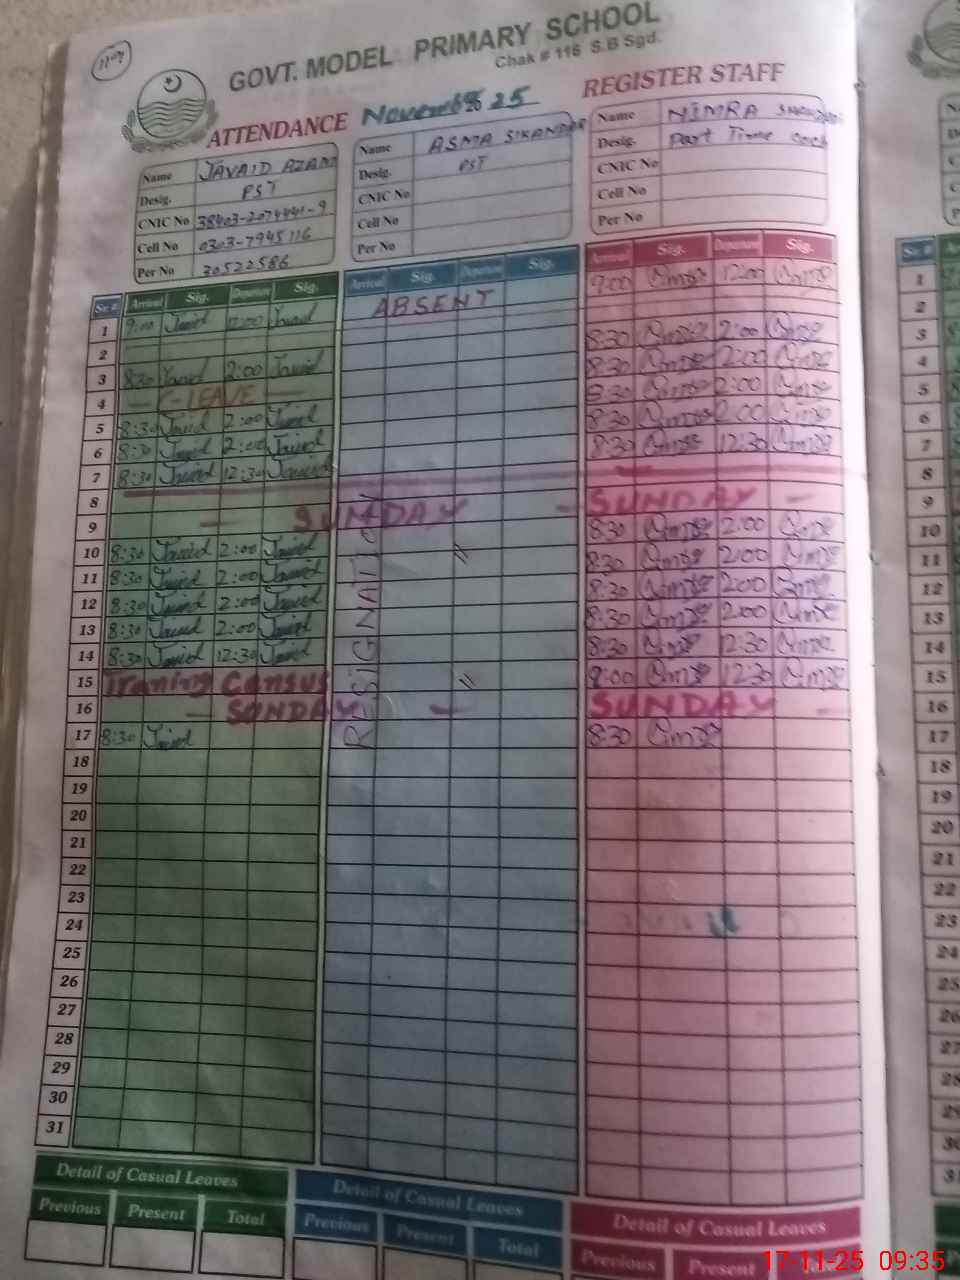 GOVT. MODEL PRIMARY SCHOOL
Chak # 116 S.B Sgd.
ATTENDANCE November 2025 REGISTER STAFF
Name JAVAID AZAM
Desig. PST
CNIC No 38403-2074441-9
Cell No 0303-7945116
Per No 30522586
Name ASMA SIKANDAR
Desig. PST
CNIC No
Cell No
Per No
Name NIMRA
Desig. Part Time
CNIC No
Cell No
Per No
Sr.# Arrival Sig. Departure Sig. Arrival Sig. Departure Sig. Arrival Sig. Departure Sig.
1 9:00 Javid 12:00 Javid ABSENT 9:00 12:00
2
3 8:30 Javid 2:00 Javid 8:30 2:00
4 — C-LEAVE — 8:30 2:00
5 8:30 Javid 2:00 Javid 8:30 2:00
6 8:30 Javid 2:00 Javid 8:30 2:00
7 8:30 Javid 12:30 Javid 8:30 12:30
8
9 — SUNDAY — SUNDAY —
10 8:30 Javid 2:00 Javid 〃 8:30 2:00
11 8:30 Javid 2:00 Javid 8:30 2:00
12 8:30 Javid 2:00 Javid 8:30 2:00
13 8:30 Javid 2:00 Javid 8:30 2:00
14 8:30 Javid 12:30 Javid 8:30 12:30
15 Traning Census 〃 9:00 12:30
16 — SUNDAY — SUNDAY —
17 8:30 Javid 8:30
RESIGNATION
18
19
20
21
22
23
24
25
26
27
28
29
30
31
Detail of Casual Leaves Detail of Casual Leaves Detail of Casual Leaves
Previous Present Total Previous Present Total Previous Present
17-11-25 09:35
Sr.#
1
2
3
4
5
6
7
8
9
10
11
12
13
14
15
16
17
18
19
20
21
22
23
24
25
26
27
28
29
30
31